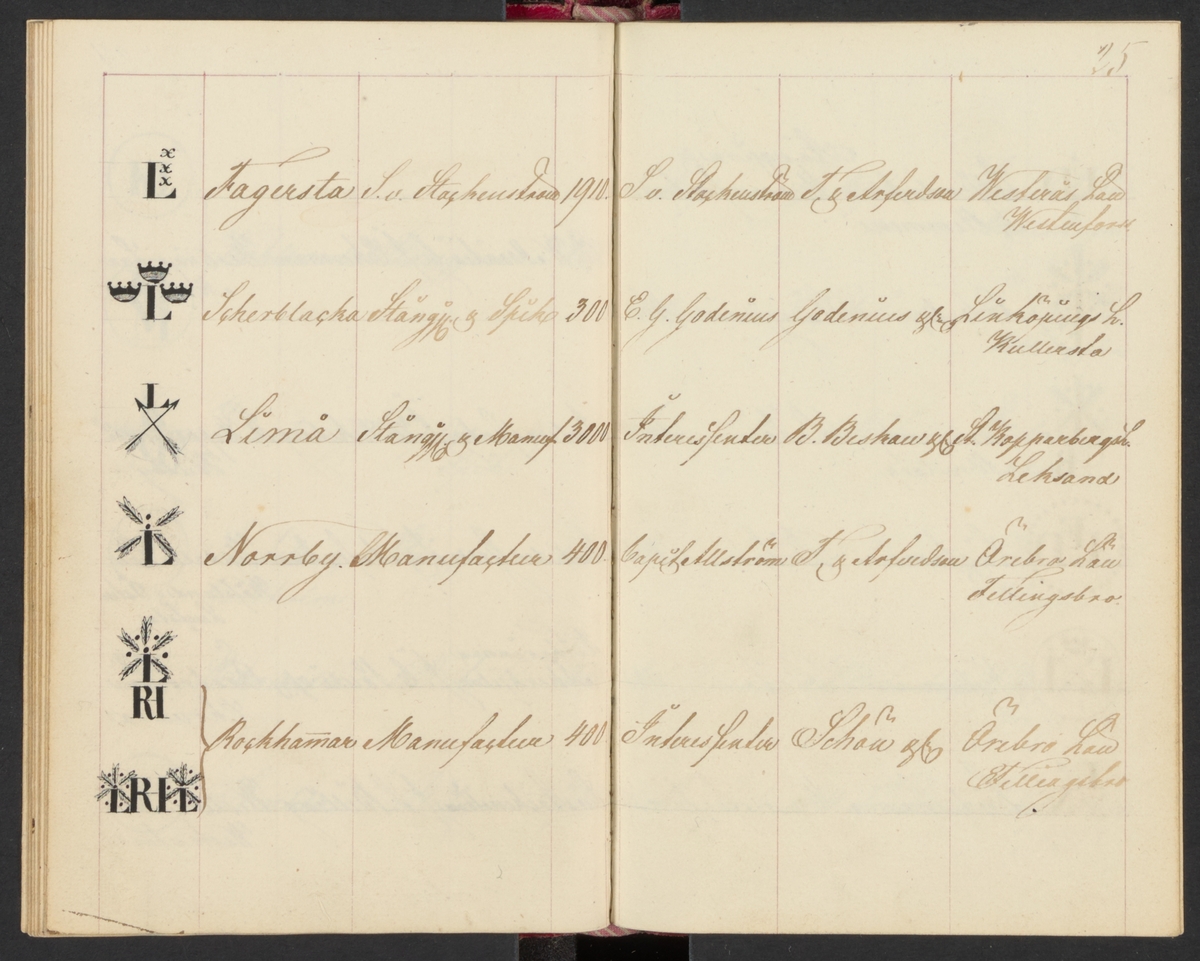 25
L x x x Fagersta S. v. Stockenström 1910. S v. Stockenström T. & Arfvedson Westerås Län
Westenfors
L Skerblacka Stångj. & Spik 300 E. G. Godenius Godenius & C. Linköpings L.
Kullersta
L Limå Stångj. & Manuf. 3000 Interessenter B. Beskow & C. St. Kopparbergs L.
Leksand
L Norrby. Manufactur 400. Capit. Allström T. & Arfvedson Örebro Län
Fellingsbro.
L
RI
Rockham̅ar Manufactur 400 Interessenter Schön & C. Örebro Län
Fellingsbro
LRIL